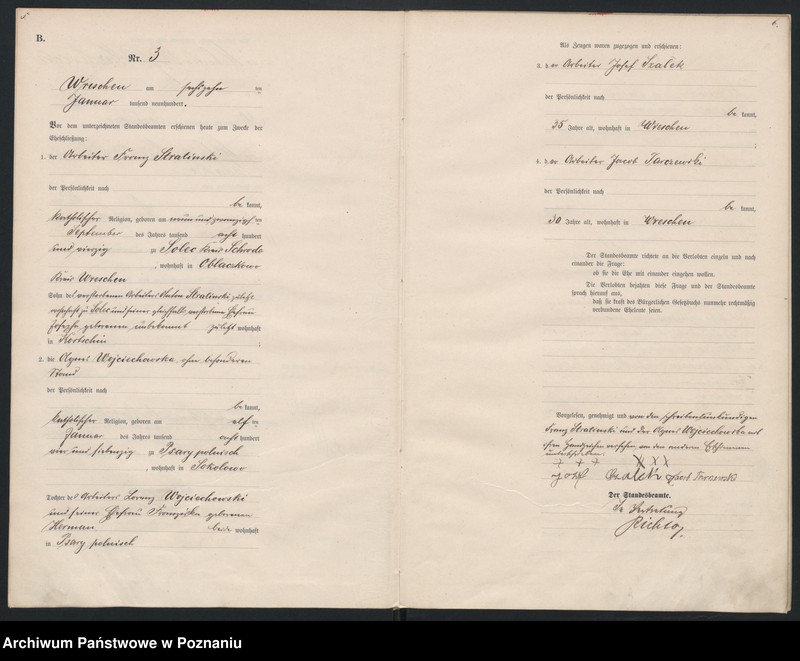 B.
Nr. 3
Wreschen am sechzehn ten
Januar tausend neunhundert.
Vor dem unterzeichneten Standesbeamten erschienen heute zum Zwecke der
Eheschließung:
1. der Arbeiter Franz Stralinski
der Persönlichkeit nach
be kannt,
katholischer Religion, geboren am neun und zwanzigsten
September des Jahres tausend acht hundert
und vierzig zu Solec Kreis Schroda
, wohnhaft in Oblaczkowo
Kreis Wreschen
Sohn des verstorbenen Arbeiters Anton Stralinski zuletzt
wohnhaft zu Solec und seiner gleichfalls verstorbenen Ehefrau
Josepha geborenen unbekannt zuletzt wohnhaft
in ;
2. die Agnes Wojciechowska, ohne besonderen
Stand
der Persönlichkeit nach
be kannt,
katholischer Religion, geboren am elf ten
Januar des Jahres tausend acht hundert
vier und siebenzig zu Psary polnisch
, wohnhaft in Sokolowo
Tochter des Arbeiters Lorenz Wojciechowski
und seiner Ehefrau Franziska geborenen
Herman beide wohnhaft
in Psary polnisch
6.
Als Zeugen waren zugezogen und erschienen:
3. der Arbeiter Josef
der Persönlichkeit nach
be kannt,
35 Jahre alt, wohnhaft in Wreschen
;
4. der Arbeiter Jacob Tarczewski
der Persönlichkeit nach
be kannt,
30 Jahre alt, wohnhaft in Wreschen
Der Standesbeamte richtete an die Verlobten einzeln und nach
einander die Frage:
ob sie die Ehe mit einander eingehen wollen.
Die Verlobten bejahten diese Frage und der Standesbeamte
sprach hierauf aus,
daß sie kraft des Bürgerlichen Gesetzbuchs nunmehr rechtmäßig
verbundene Eheleute seien.
Vorgelesen, genehmigt und von den schreibensunkundigen
Franz Stralinski und der Agnes Wojciechowska mit
ihren Handzeichen versehen, von den anderen Erschienenen
unterschrieben.
+ + + XXX
Der Standesbeamte.
In Vertretung
Archiwum Państwowe w Poznaniu